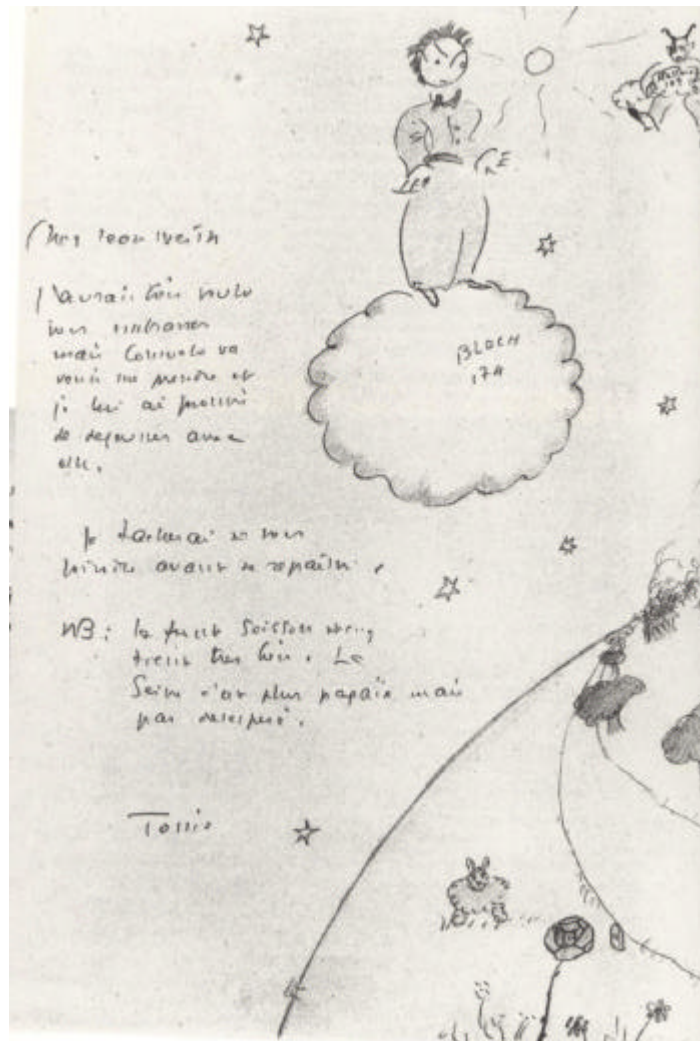 BLOCH
174
Cher Leon Werth
J'aurais bien voulu
vous embrasser
mais Consuelo va
venir me prendre et
je lui ai promis
de dejeuner avec
elle.
Je tacherai de vous
avant de repartir.
NB : le front Soissons
tient tres bien. Le
Seine plus mais
pas desespéré.
Tonio